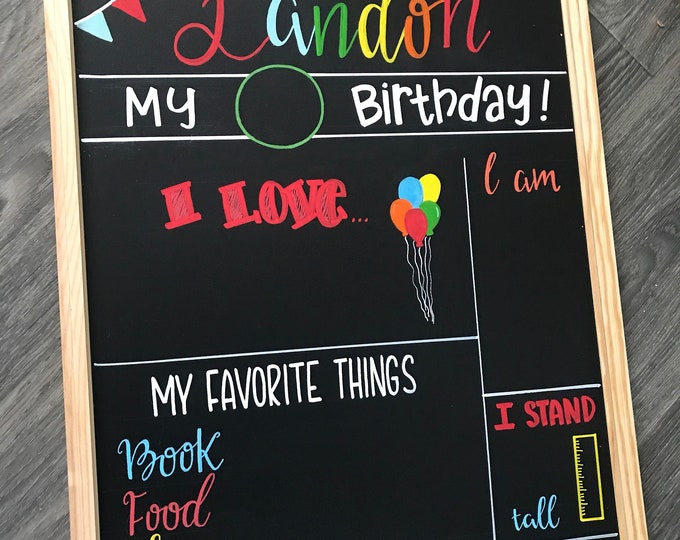 Landon
My Birthday!
I LOVE...
I am
MY FAVORITE THINGS
Book
Food
I STAND
tall